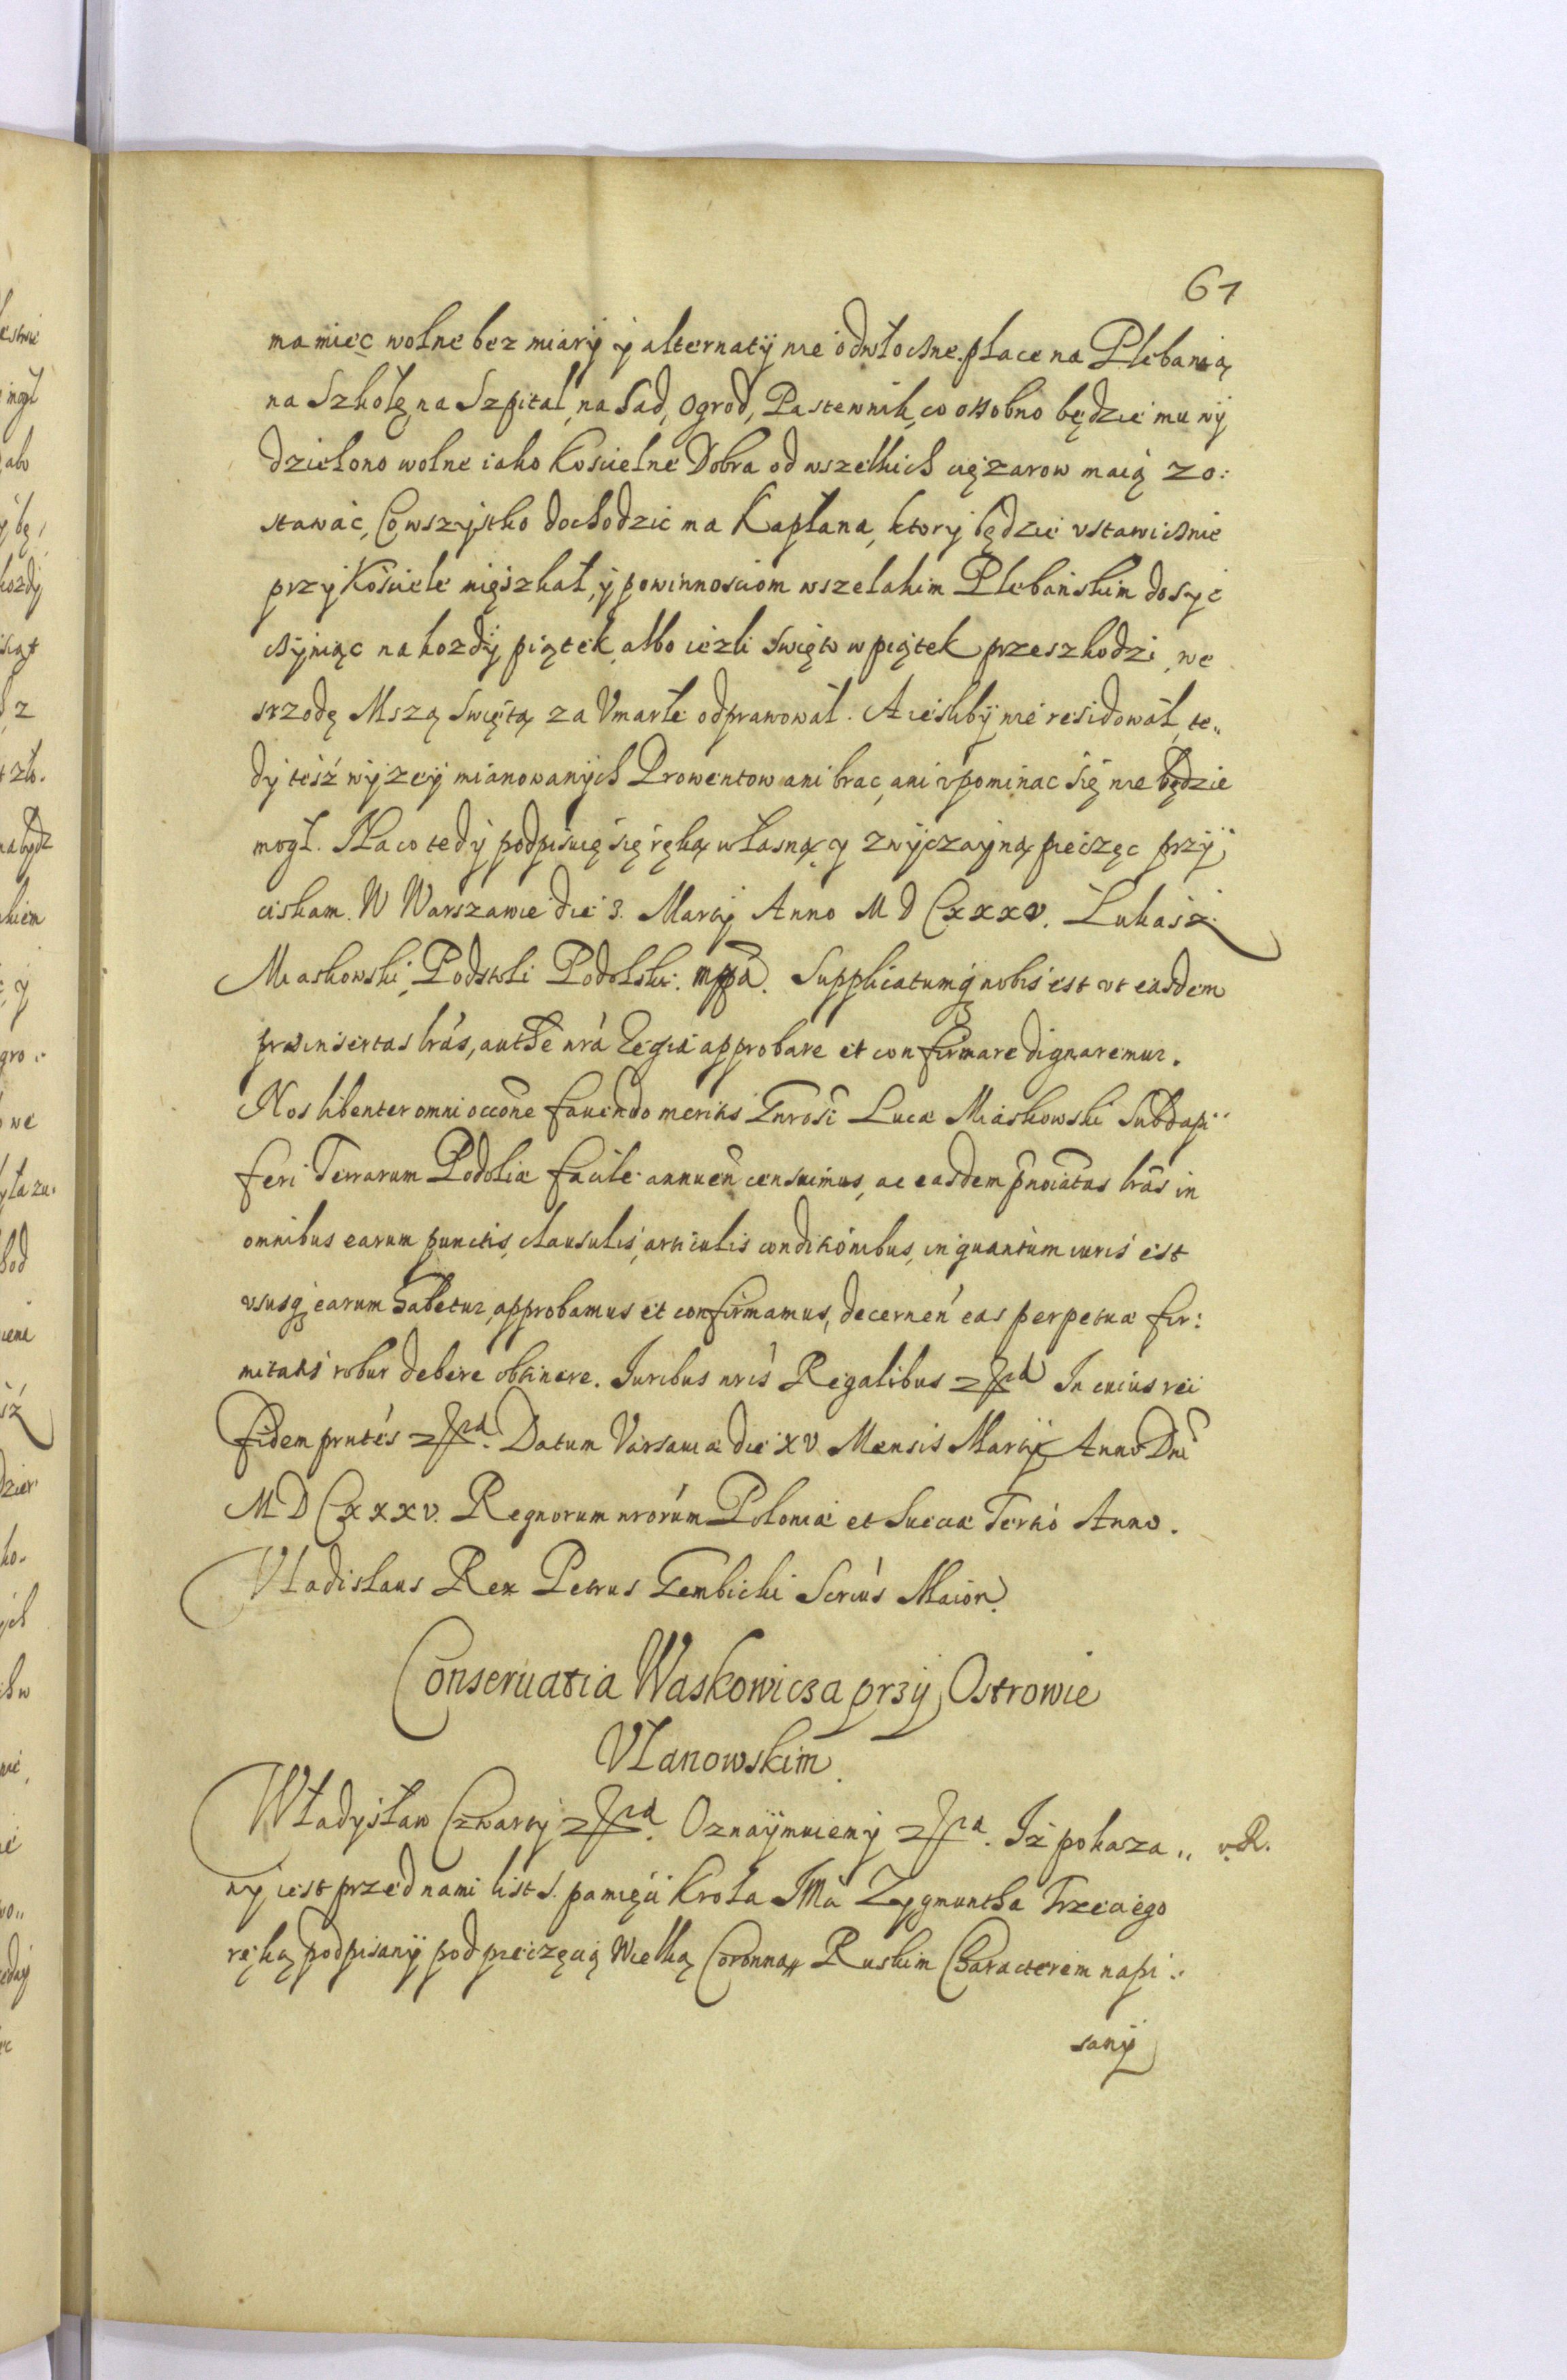 61
ma miec wolne bez miary y alternaty nie odwłoczne place na Plebanią
na Szkołę na Szpital, na Sad, Ogrod, Pastewnik, co ossobno będzie mu wy
dzielono wolne iako Koscielne Dobra od wszelkich ciężarow maią zo:
stawac, Co wszystko dochodzic ma Kapłana, ktory będzie vstawicznie
przy Kościele mięszkał, y powinnosciom wszelakim Plebańskim dosyc
czyniąc na kozdy piątek, albo iezli swięto w piątek przeszkodzi, we
srzodę Mszą swiętą za Vmarłe odprawował. A iesliby nie residował, te„
dy tesz wyzey mianowanych Prowentow ani brac, ani vpominac się nie będzie
mogł. Na co tedy podpisuię się ręką własną y zwyczayną pieczęc przy
ciskam. W Warszawie die 3. Martij Anno MDCXXXV. Łukasz
Miaskowski, Podstoli Podolski. mppa. Supplicatumq nobis est vt easdem
præinsertas lrás, authe nrá Regiá approbare et confirmare dignaremur.
Nos libenter omni occone fauendo meritis Gnrosi Lucæ Miaskowski Subdapi„
feri Terrarum Podoliæ facile annuen censuimus, ac easdem pnoiatas lras in
omnibus earum punctis, clausulis, articulis conditionibus, in quantum iuris est
vsusq earum habetur, approbamus et confirmamus, decernen eas perpetuæ fir:
mitatis robur debere obtinere. Juribus nris Regalibus In cuius rei
fidem prntes Datum Varsauiæ die XV Mensis Martij Anno Dni
MDCXXXV. Regnorum nrorum Poloniæ et Sueciæ Tertio Anno.
Vladislaus Rex Petrus Gembicki Scrius Maior.
Conseruatia Waskowicza przy Ostrowie
Vłanowskim.
Władysław Czwarty Oznaymuiemy Iz pokaza„ v.R.
ny iest przed nami list s. pamięci Krola JMci Zygmuntha Trzeciego
ręką podpisany pod pieczęcią Wielką Coronną Ruskim Characterem napi:
sany